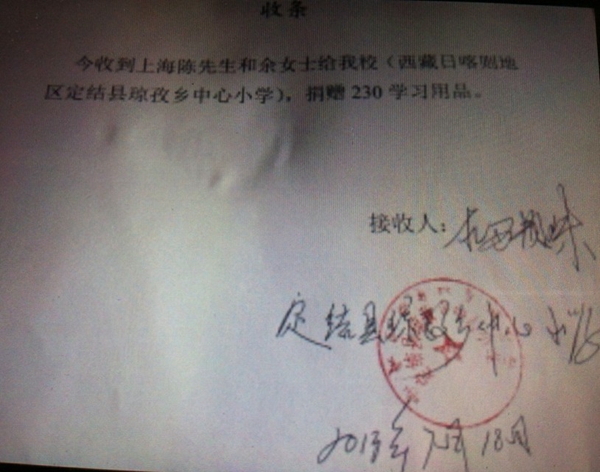 收条
今收到上海陈先生和余女士给我校（西藏日喀则地
区定结县琼孜乡中心小学），捐赠 230 学习用品。
接收人：
定结县琼孜乡中心小学
2013年7月18日